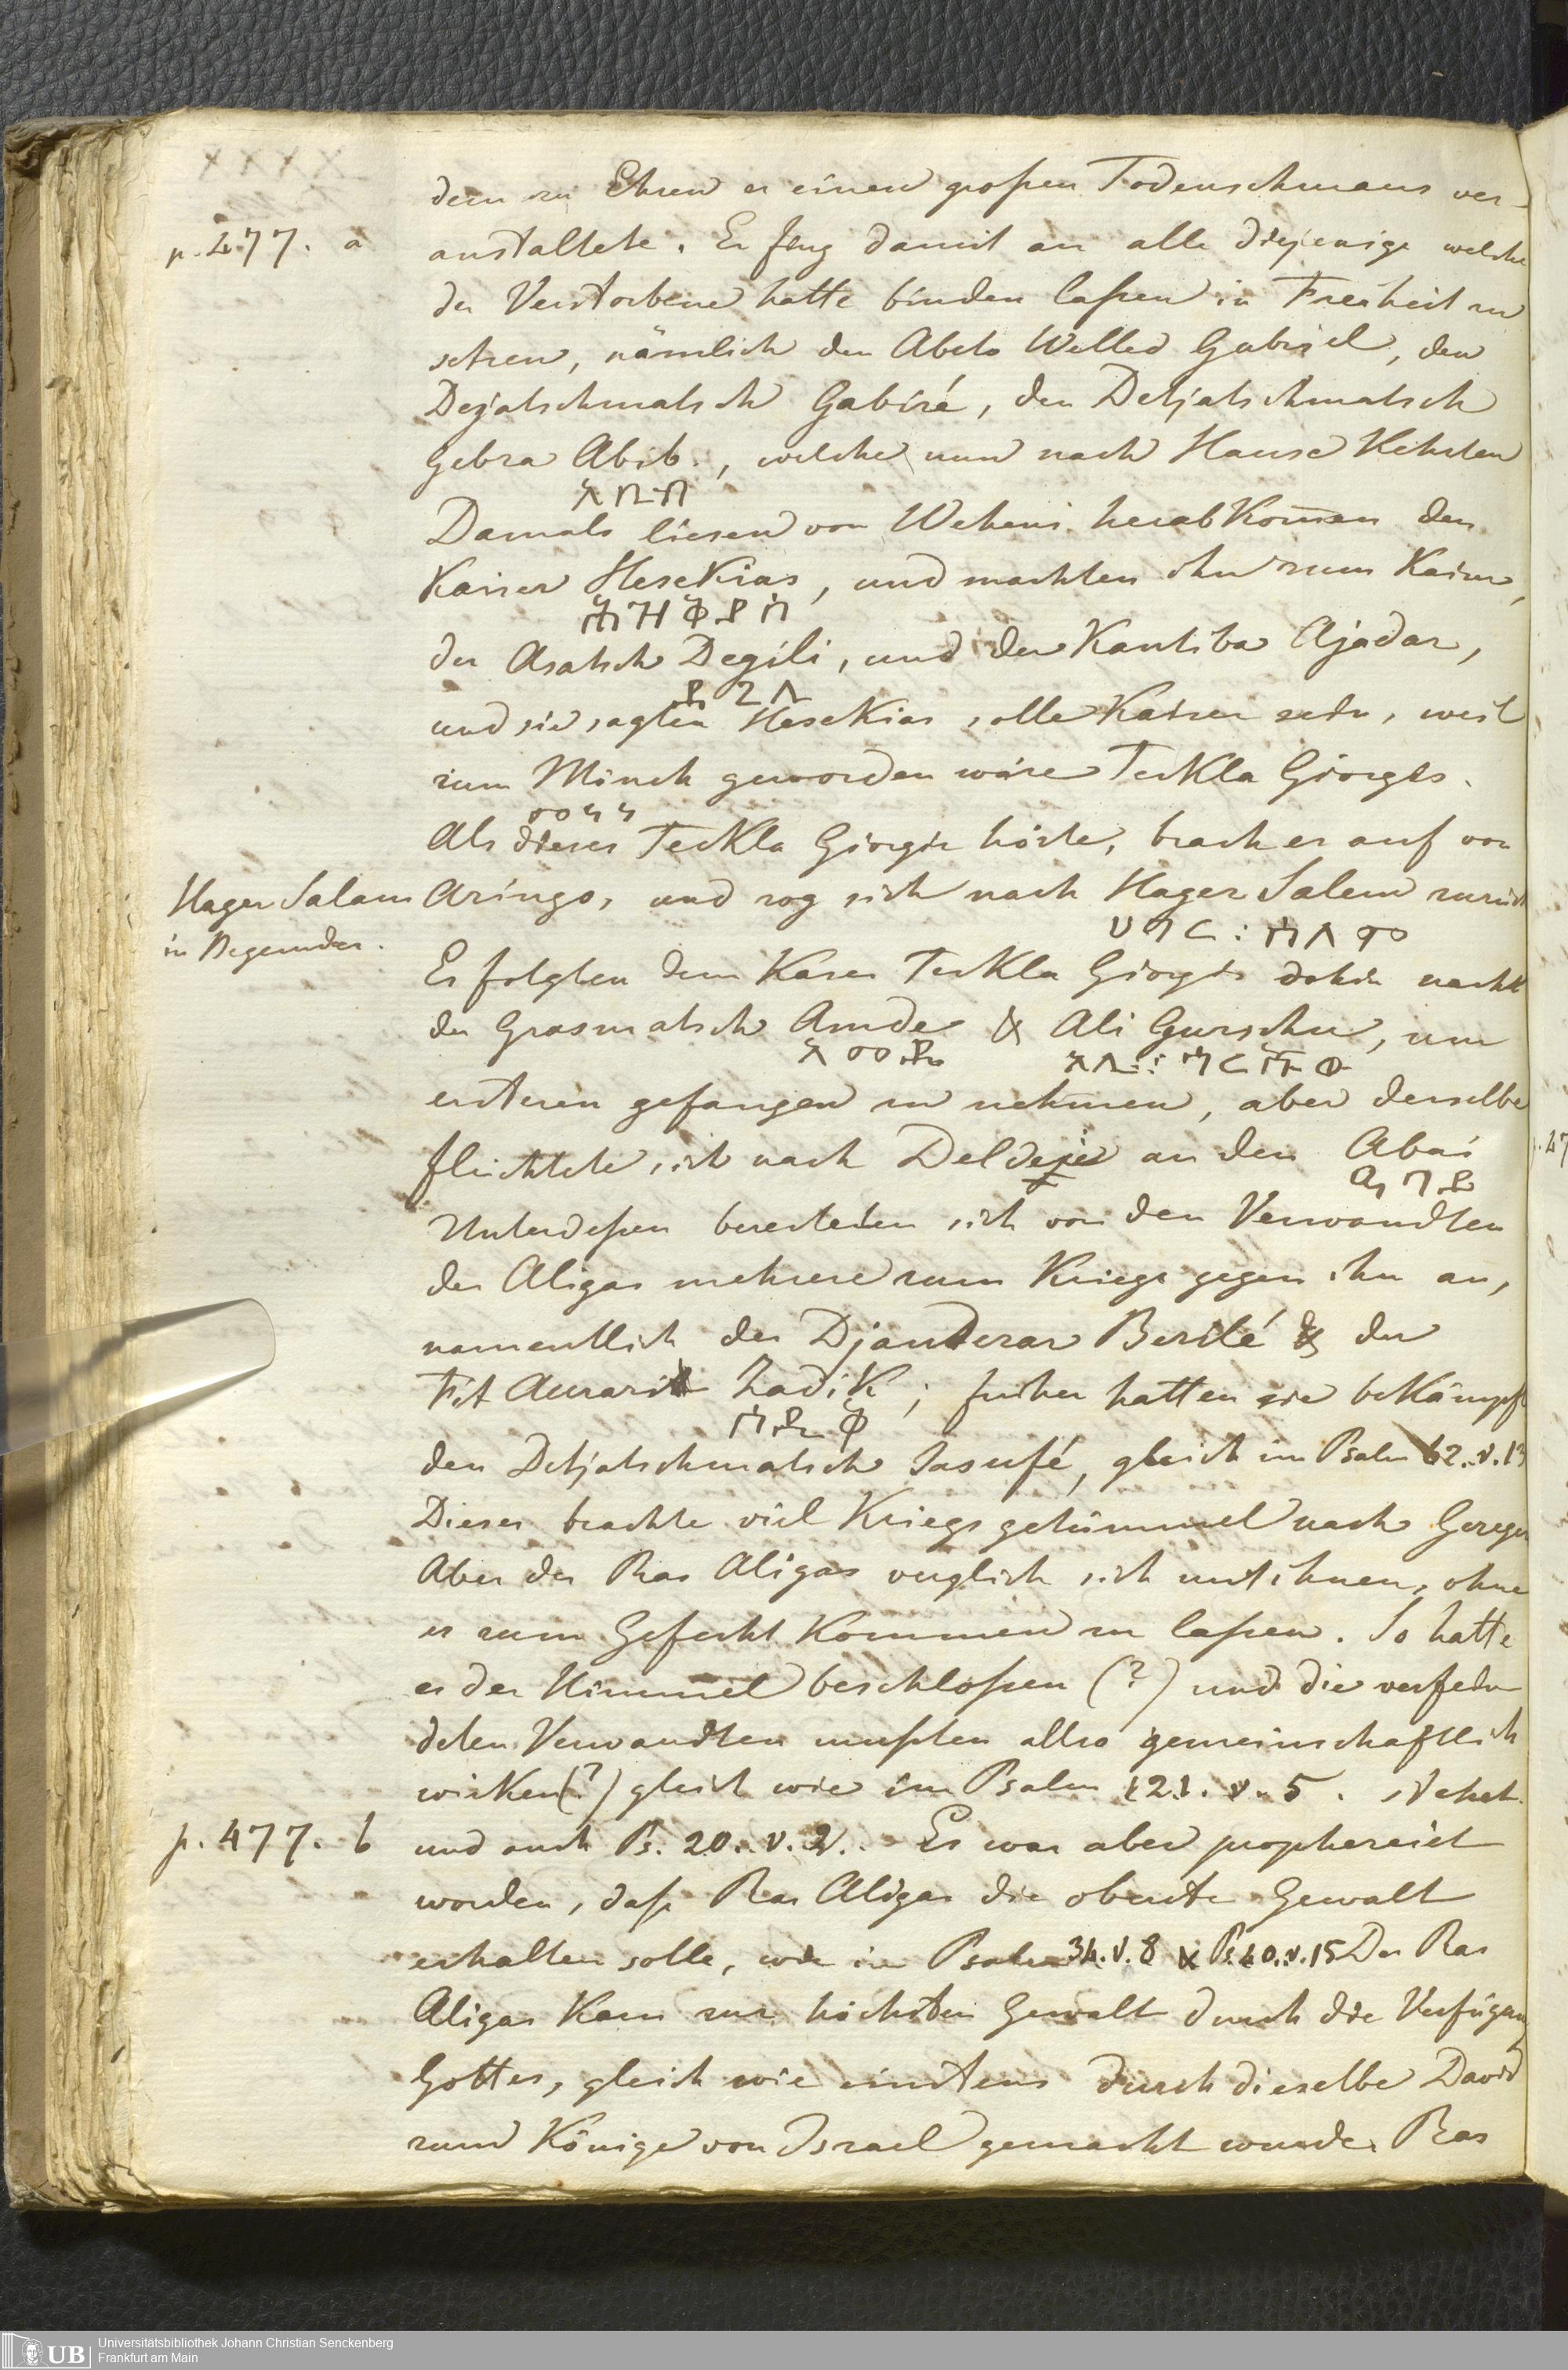 dem zu Ehren er einen großen Todenschmaus ver-
p. 477. a
anstaltete. Er fing damit an alle diejenige welche
der Verstorbene hatte binden laßen in Freiheit zu
setzen, nämlich den Abeto Welled Gabriel, den
Dejatschmatsch Gabiré, den Detjatschmatsch
Gebra Abib., welche nun nach Hause Kehrten
አቢብ
Damals liesen von Weheni herabKomen den
Kaiser HeseKias, und machten ihn zum Kaiser,
ሕዝቅያስ
der Asatsch Degili, und der Kantiba Ajadar,
ደጊሊ
und sie sagten HeseKias solle Kaiser sein, weil
zum Mönch geworden wäre TecKla Giorgis.
መንኵ
Als dieses TecKla Giorgis hörte, brach er auf von
Hager Salam
in Begemder.
Aringo, und zog sich nach Hager Salem zurück
ሀገር : ሰላም
Es folgten dem Kaiser TecKla Giorgis dahin nach
der Grasmatsch Amde & Ali Gurschu, um
አምዴ
አሊ : ጉርሹ
ersteren gefangen zu nehmen, aber derselbe
flüchtete sich nach Deldeje an den Abai
ዓባይ
Unterdeßen bereiteten sich von den Verwandten
des Aligas mehrere zum Kriege gegen ihn an,
namentlich der Djanderar Berilé & der
Fit Aurari ZadiK; früher hatten sie beKämpft
ሳዲቅ
den Detjatschmatsch Jasufé, gleich im Psalm 62. v. 13
Dieser brachte viel Kriegsgetümmel nach
Aber der Ras Aligas verglich sich mit ihnen, ohne
es zum Gefecht Kommen zu laßen. So hatte
es der Himmel beschloßen (?) und die verfein
deten Verwandten mußten also gemeinschaftlich
wirken (?) gleich wie im Psalm 121. v. 5. stehet.
p. 477. b
und auch Ps. 20. v. 2. Es war aber prophezeiet
worden, daß Ras Aligas die oberste Gewalt
erhalten solle, wie in Psalm 34. v. 8 & Ps. 40. v. 15 Der Ras
Aligas Kam zur höchsten Gewalt durch die Verfügung
Gottes, gleich wie einstens durch dieselbe David
zum Könige von Israel gemacht wurde. Ras
UB
Universitätsbibliothek Johann Christian Senckenberg
Frankfurt am Main